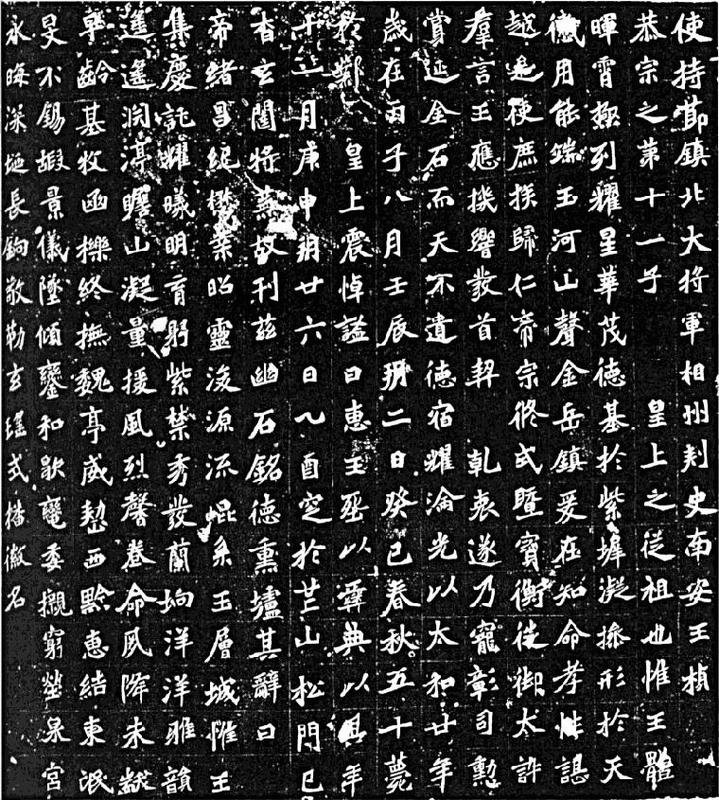 使持節鎮北大將軍相州刺史南安王楨
恭宗之第十一子 皇上之從祖也惟王體
暉霄極列耀星華茂德基於紫墀凝操形於天
儀用能端玉河山聲金岳鎮爰在知命孝性諶
越是使庶族歸仁帝宗攸式暨寶衡徙御太訊
羣言王應機響發首契 乾衷遂乃寵彰司勳
賞延金石而天不遺德宿耀淪光以太和廿年
歲在丙子八月壬辰朔二日癸巳春秋五十薨
於鄴 皇上震悼諡曰惠王葬以彝典以其年
十一月庚申朔廿六日乙酉窆於芒山松門已
杳玄闥將蕪故刊茲幽石銘德熏壚其辭曰
帝緒昌紀懋業昭靈浚源流崐系玉層城惟王
集慶託耀曦明育躬紫禁秀發蘭坰洋洋雅韻
遙遙淵渟瞻山凝量援風烈馨卷命夙降未黻
早齡基牧函櫟終撫魏亭威整西黔惠結東氓
旻不錫嘏景儀墜傾鑾和歇轡委櫬窮塋泉宮
永晦深埏長鉤敬勒玄瑤式播徽名